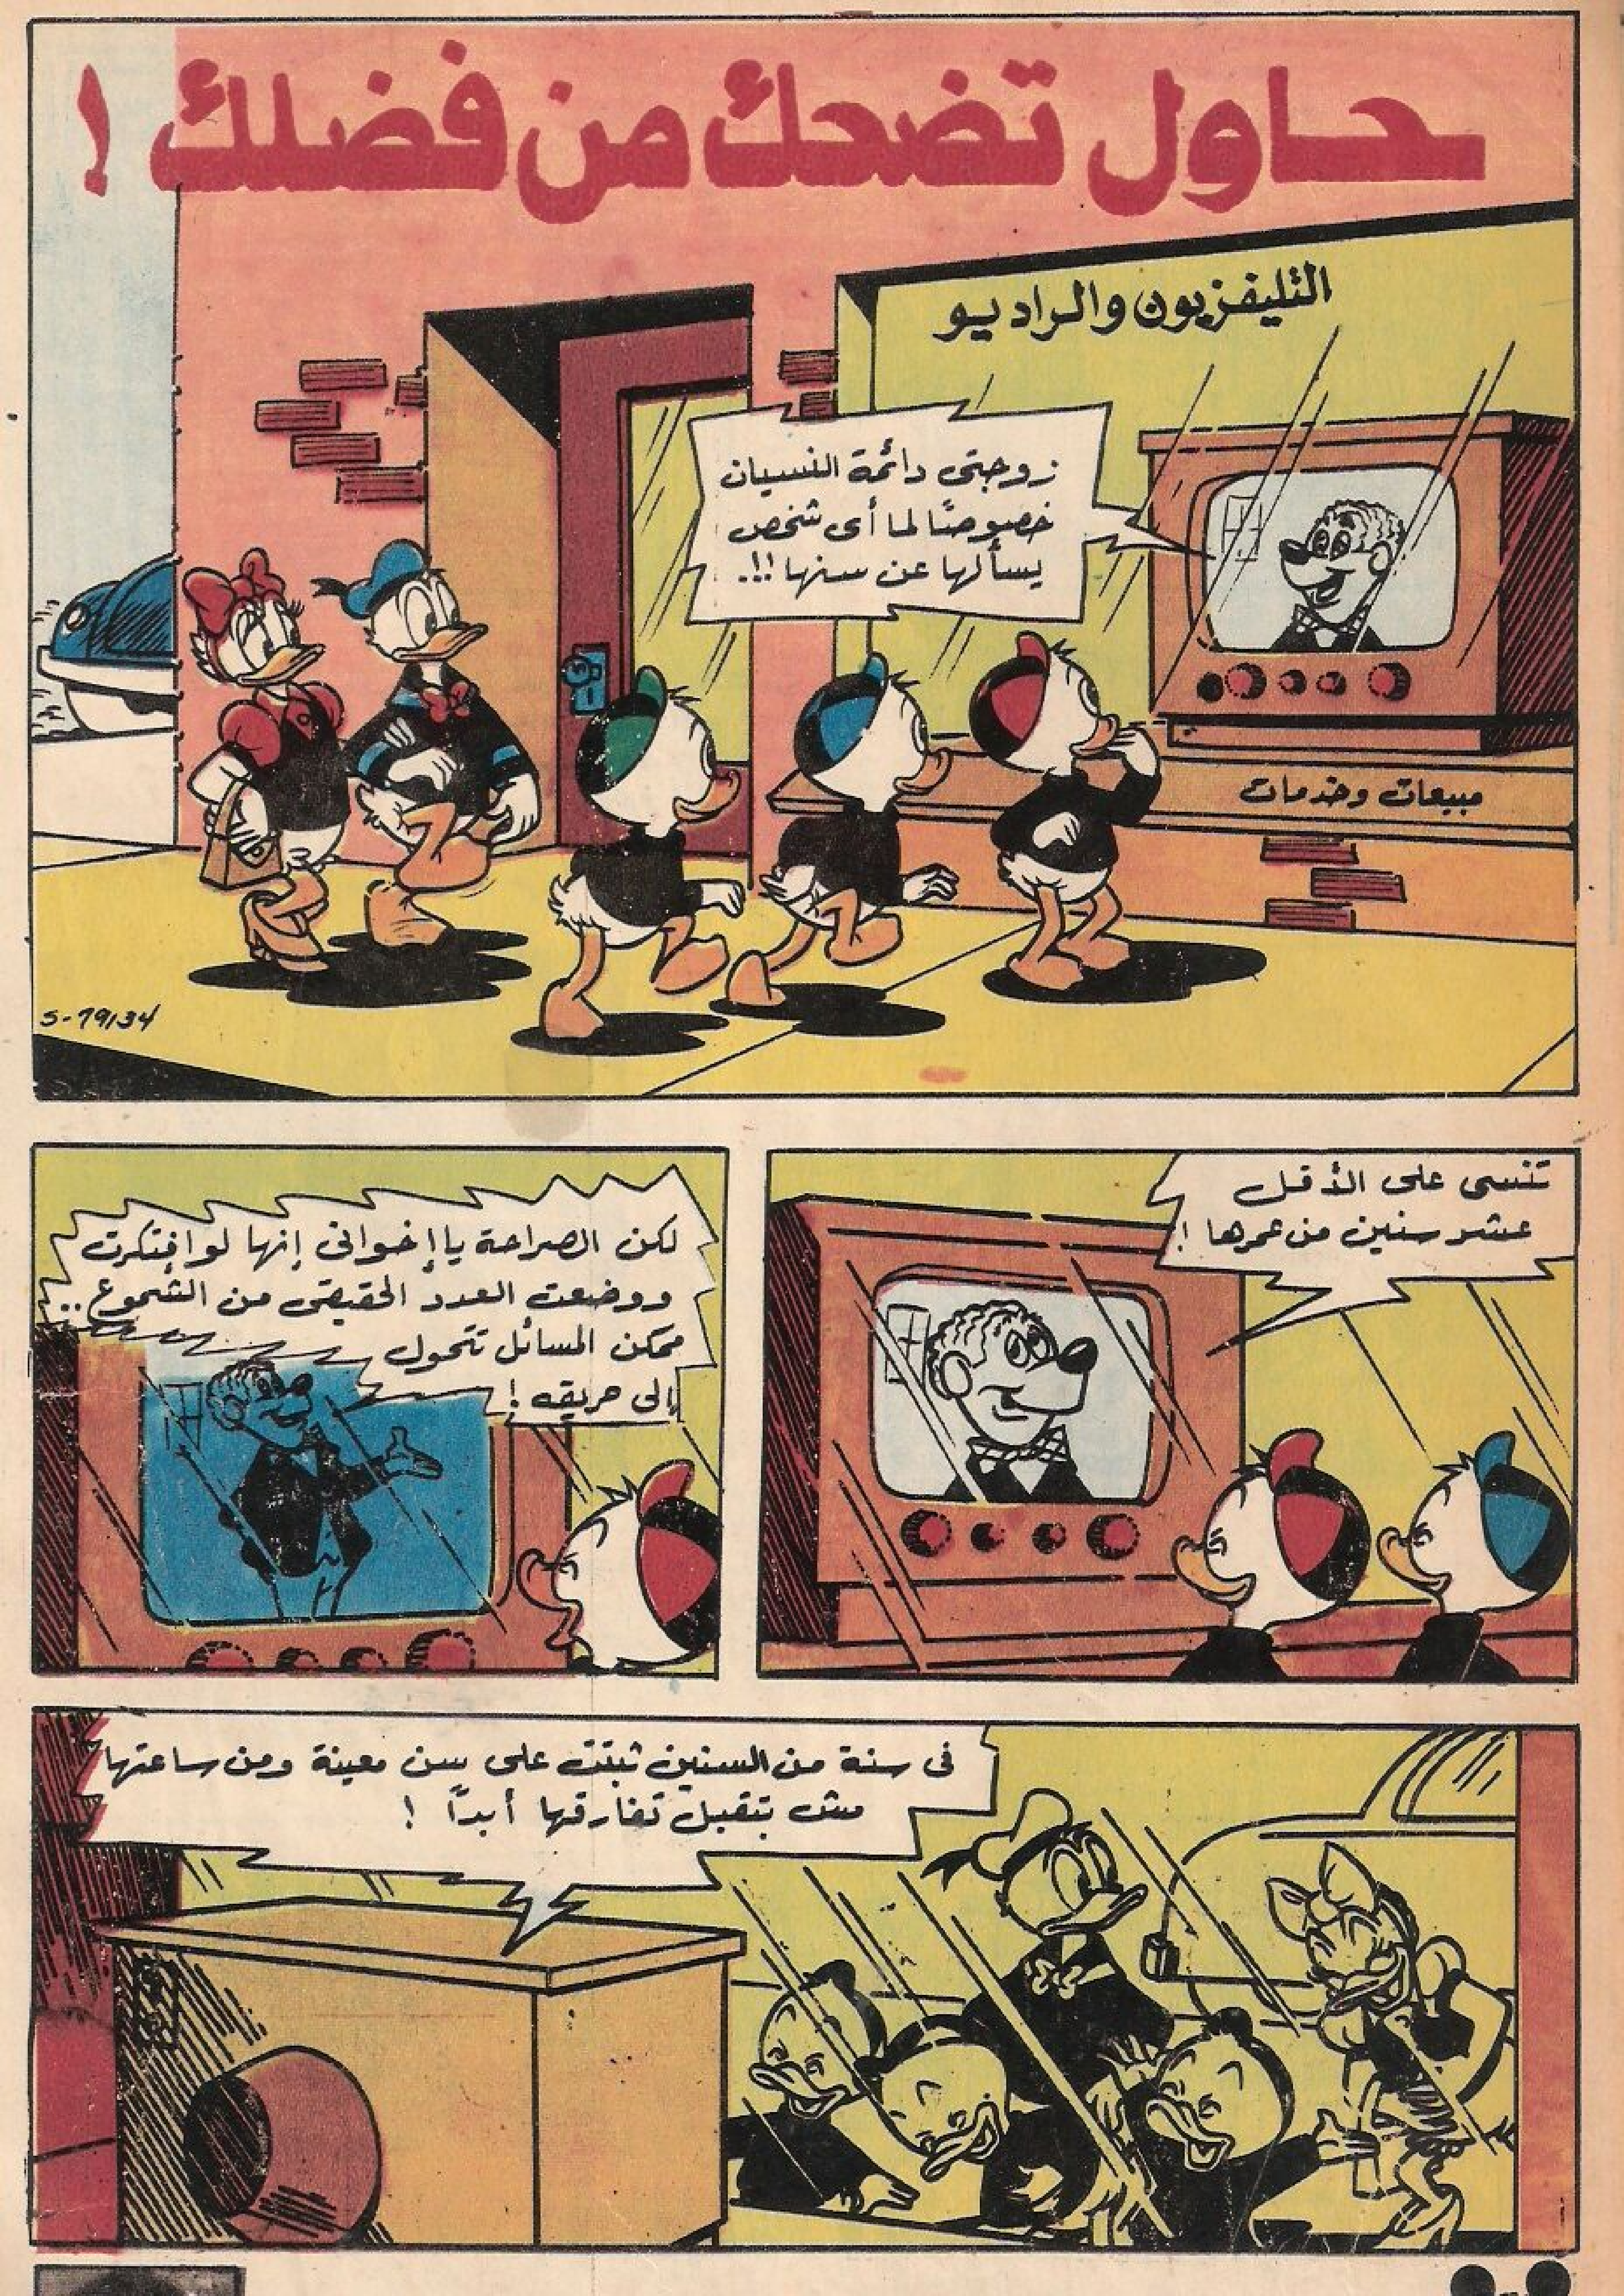 حاول تضحك من فضلك !
التليفزيون والراديو
زوجتى دائمة النسيان
خصوصًا لما أى شخص
يسألها عن سنها !!..
مبيعات وخدمات
S-79134
تنسى على الأقل
عشر سنين من عمرها !
لكن الصراحة يا إخوانى إنها لو افتكرت
ووضعت العدد الحقيقى من الشموع ..
ممكن المسائل تتحول
إلى حريقه !
فى سنة من السنين ثبتت على سن معينة ومن ساعتها
مش بتقبل تفارقها أبدًا !